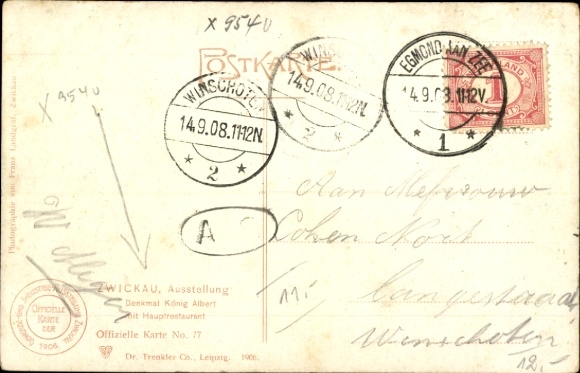 X 954U
POSTKARTE.
WINSCHOTEN
14.9.08.11-12N.
2
WINSCHOTEN
14.9.08.11-12N.
2
EGMOND AAN ZEE
14.9.08.11-12V.
1
1
X 954U
Photographie von Franz Landgraf, Zwickau.
A
Aan Mejuffrouw
Cohen Noot
Langestraat
Winschoten
11.-
12.-
ZWICKAU, Ausstellung
Denkmal König Albert
mit Hauptrestaurant
Offizielle Karte No. 77
Dr. Trenkler Co., Leipzig. 1906.
OFFIZIELLE
KARTE
DER
1906.